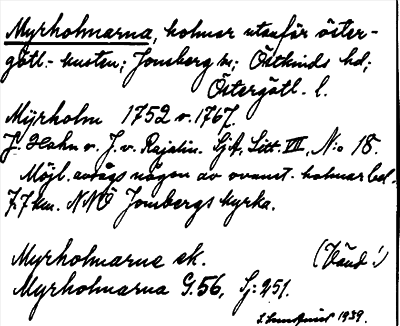 Myrholmarna, holmar utanför öster-
götl.-kusten; Jonsberg sn; Östkinds hd;
Östergötl. l.
Myrholm 1752 v. 1767.
J. Hahn o. J. v. Rajalin. Sjk, Litt. VII, N:o 18.
Möjl. avsågs någon av ovannt. holmar bel.
7,7 km. NNÖ Jonsbergs kyrka.
Myrholmarne ek. (Vänd!)
Myrholmarna G.56, Sj: 251.
1939.